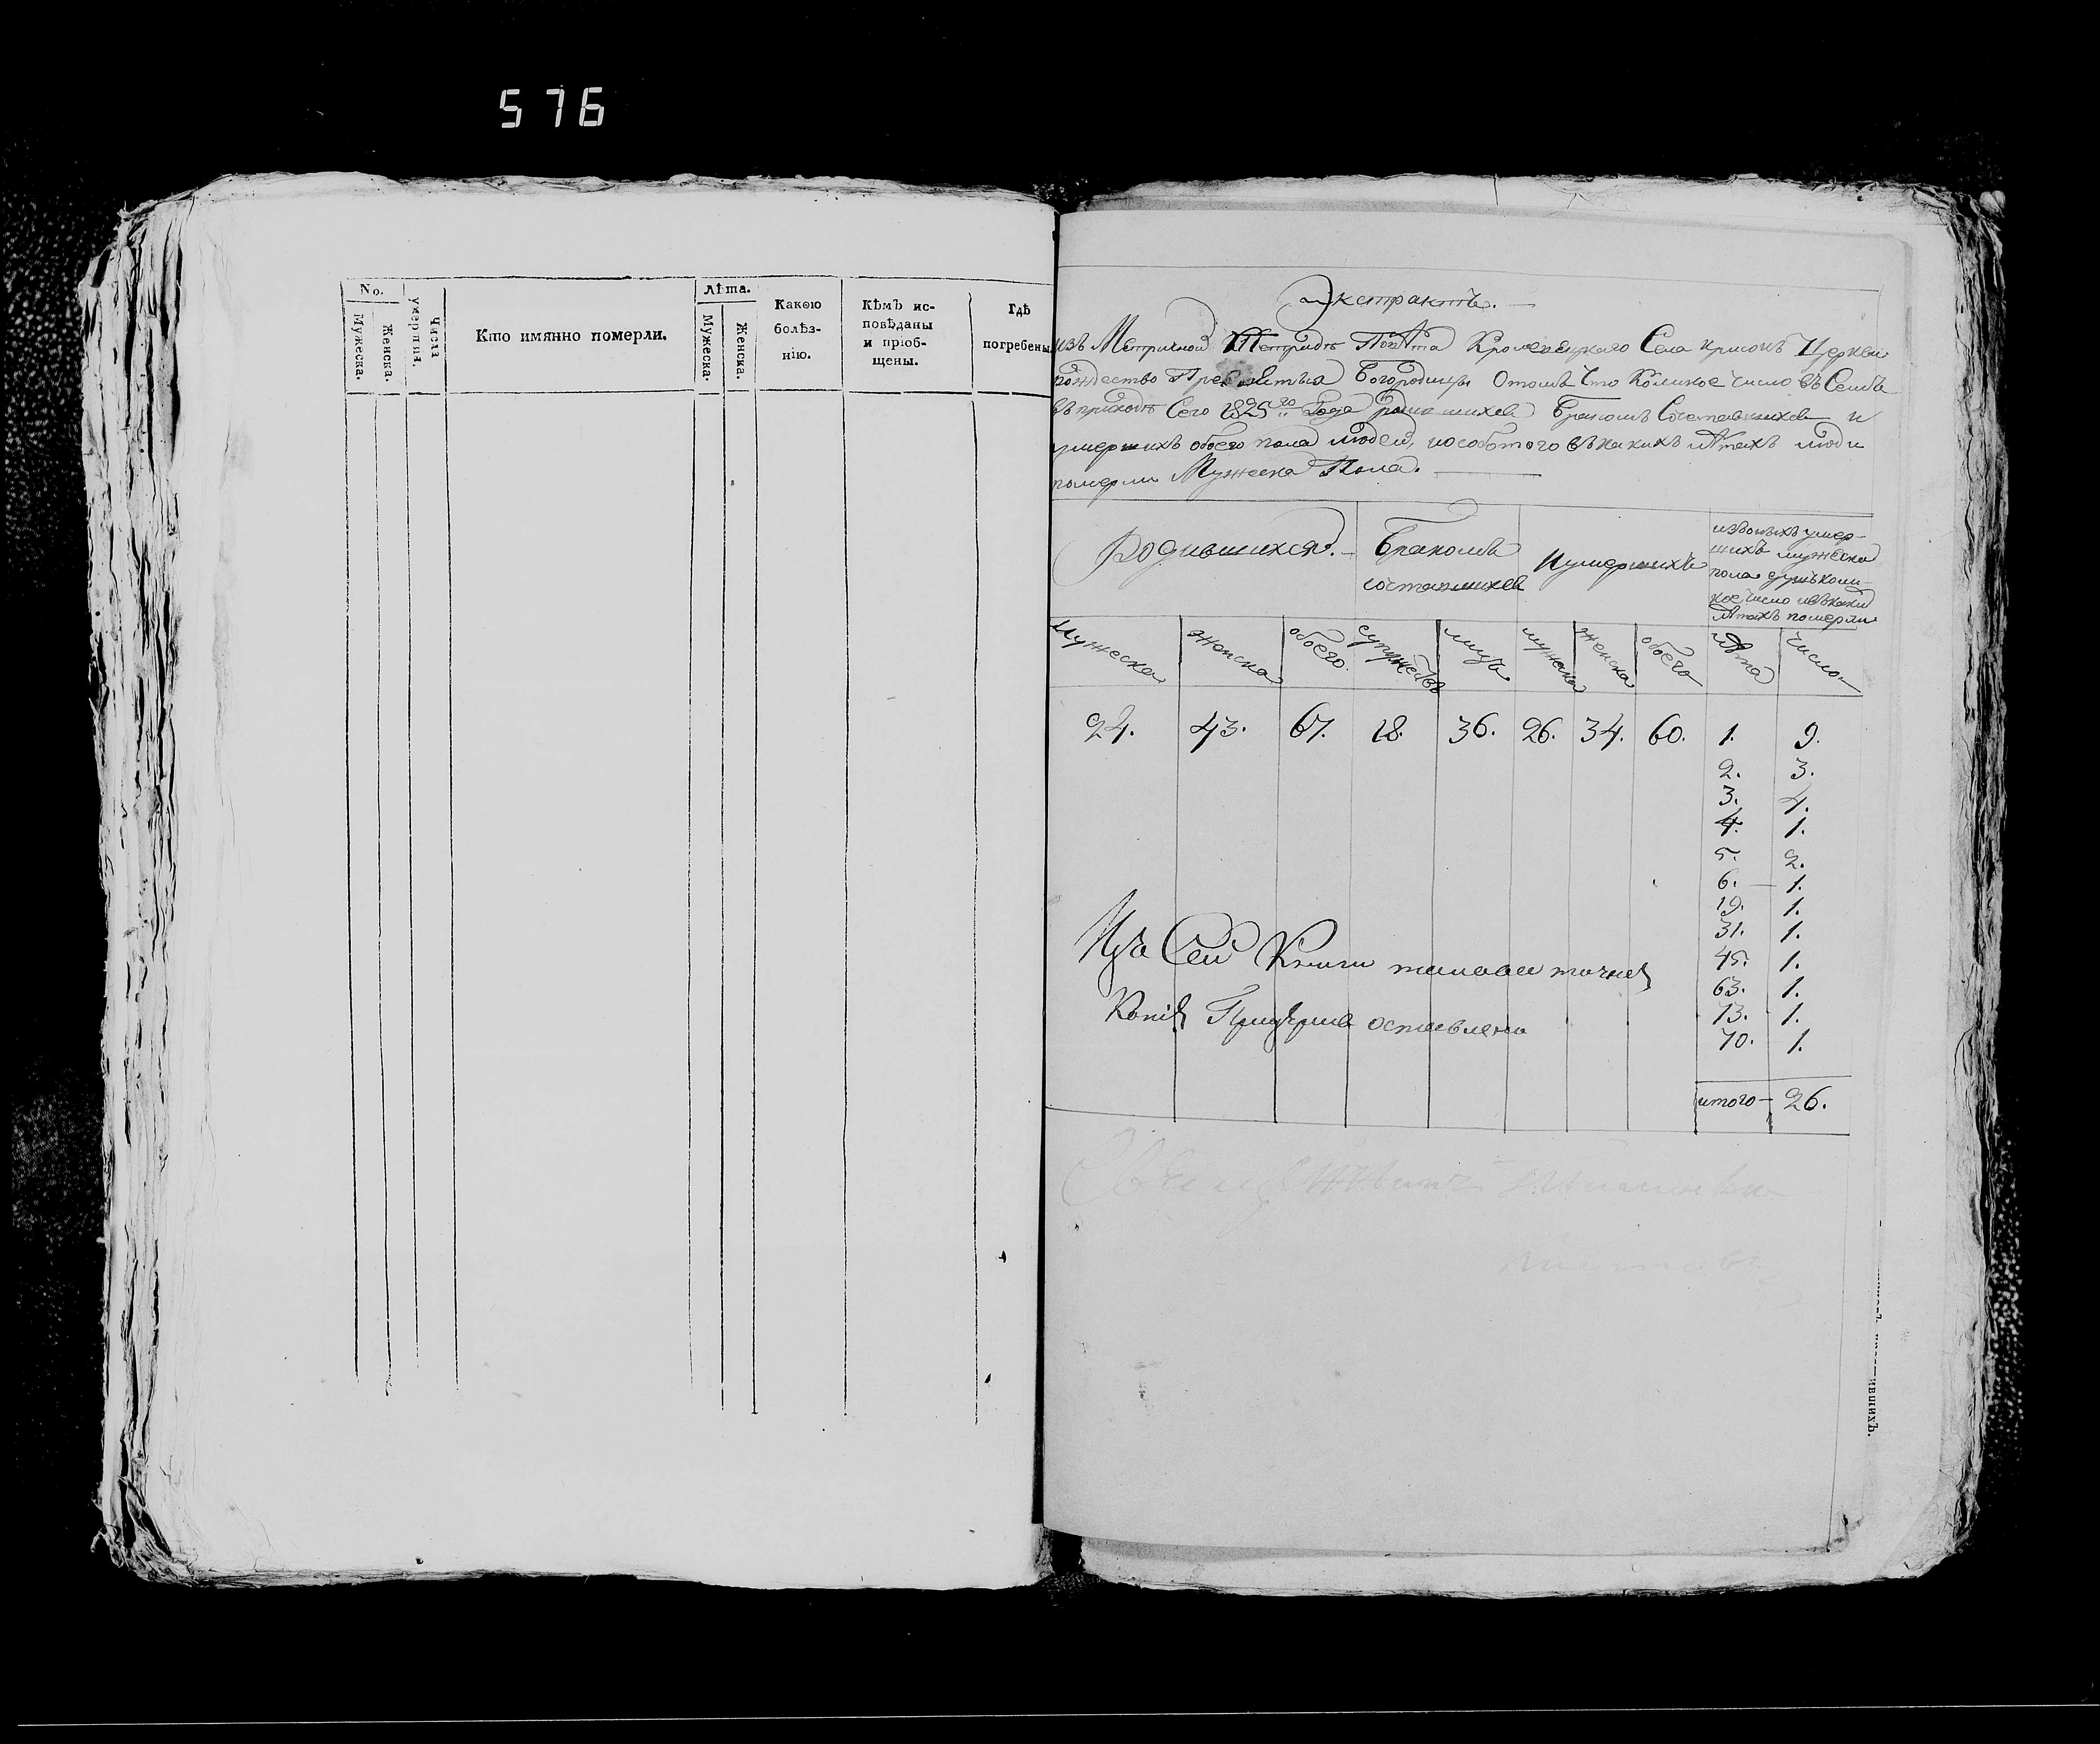 576
No.
Мужеска.
Женска.
Числа умершихъ.
Кто имянно померли.
Лѣта.
Мужеска.
Женска.
Какою
болѣз-
нію.
Кѣмъ ис-
повѣданы
и пріоб-
щены.
Гдѣ
погребены
Экстрактъ.
изъ Метрикной Тетради Повѣта Кролевецкаго Села Церкви
рождество Пресвятыя Богородицы Отомъ Что Коликое число въ Семъ
въ приходѣ Сего 1825го Года Бракомъ и
умершихъ обоего пола людей, и особ того въ какихъ лѣтахъ люди
померли Мужеска Пола.
Родившихся.
Бракомъ
Иумершихъ
изъ умер-
шихъ мужеска
пола
кое число въ каких
лѣтахъ померли
Мужеска
женска
обоего.
супружествъ
лицъ
мужеска
женска
обоего
лѣта
число
24. 43. 67. 18. 36. 26. 34. 60. 1. 9.
2. 3.
3. 4.
4. 1.
5. 2.
6. 1.
19. 1.
31. 1.
45. 1.
63. 1.
73. 1.
70. 1.
Изъ Сей Книги таковая точная
Копія При Церкви оставлена
итого 26.